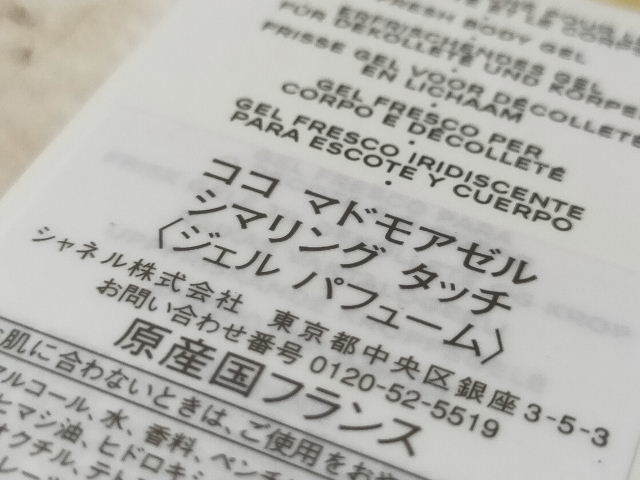 FRESH BODY GEL
ERFRISCHENDES GEL
FÜR DEKOLLETÉ UND KÖRPER
FRISSE GEL VOOR DÉCOLLETÉ
EN LICHAAM
GEL FRESCO PER
CORPO E DÉCOLLETÉ
GEL FRESCO IRIDISCENTE
PARA ESCOTE Y CUERPO
ココ マドモアゼル
シマリング タッチ
〈ジェル パフューム〉
シャネル株式会社 東京都中央区銀座 3-5-3
お問い合わせ番号 0120-52-5519
原産国フランス
肌に合わないときは、ご使用をお
アルコール、水、香料、ペンチ
ヒマシ油、ヒドロキシ
オクチル、テト